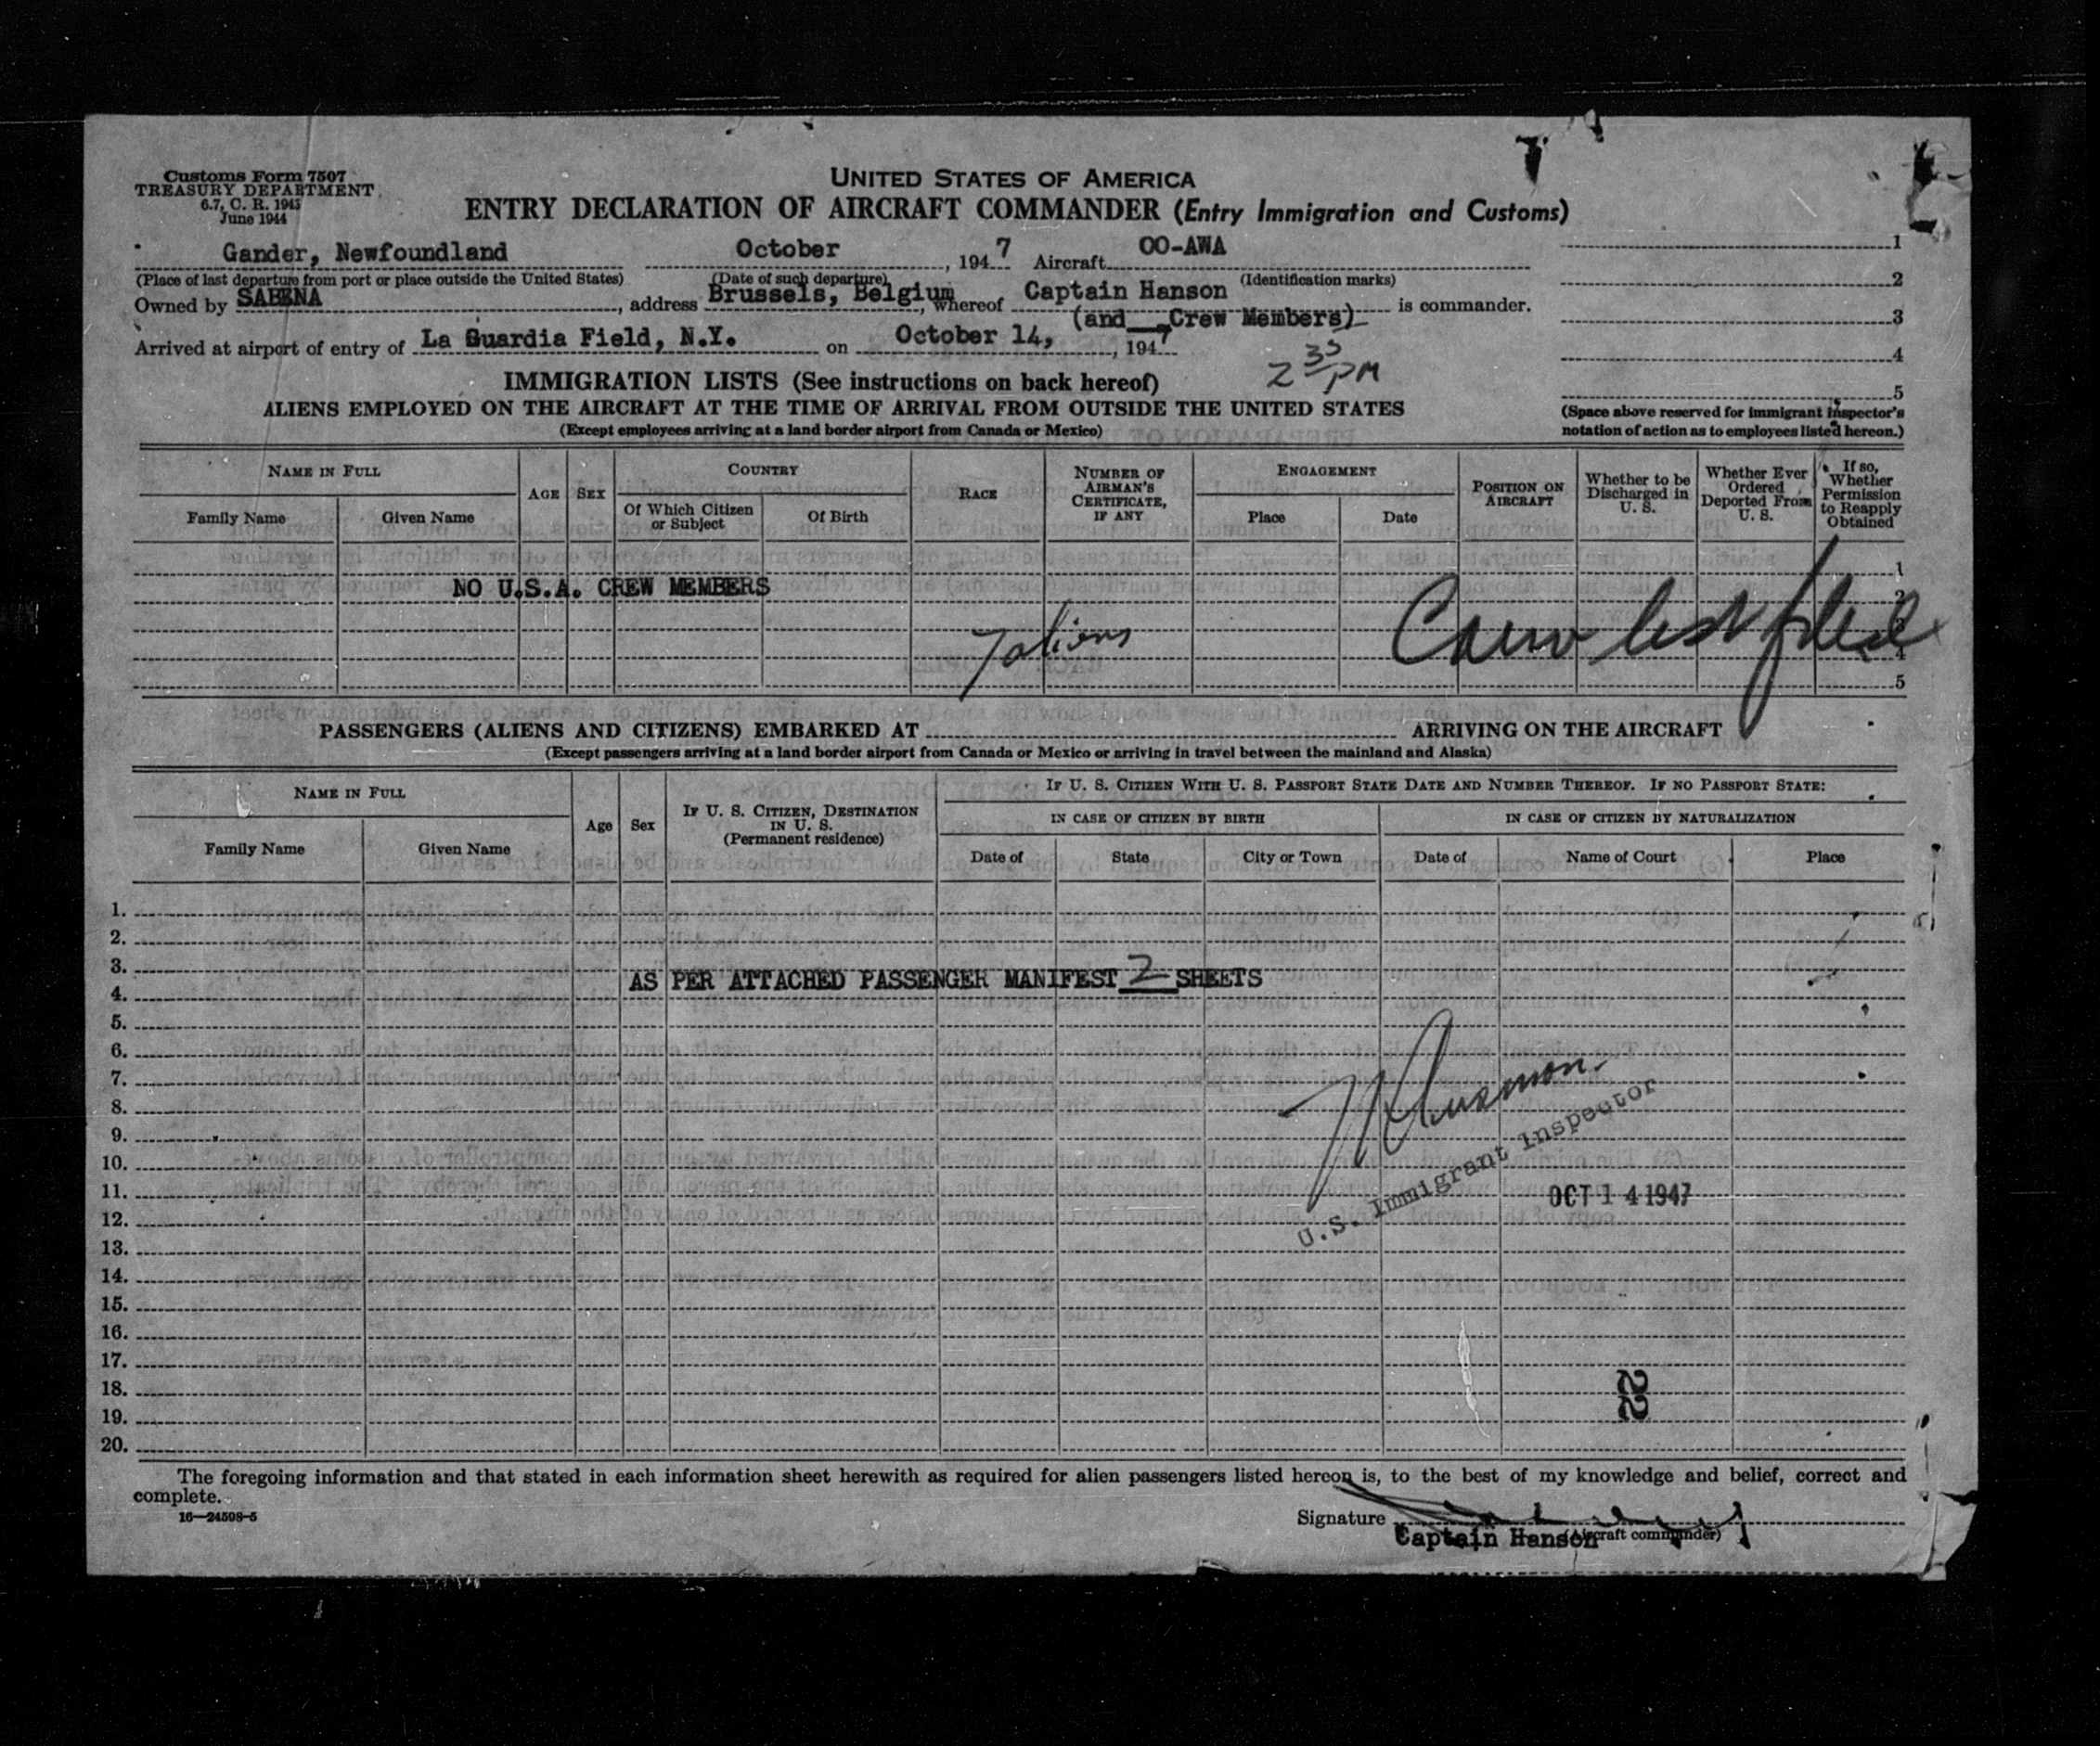 Customs Form 7507
TREASURY DEPARTMENT
6.7, C. R. 1943
June 1944
UNITED STATES OF AMERICA
ENTRY DECLARATION OF AIRCRAFT COMMANDER (Entry Immigration and Customs)
Gander, Newfoundland October , 1947 Aircraft OO-AWA
(Place of last departure from port or place outside the United States) (Date of such departure) (Identification marks)
Owned by SABENA , address Brussels, Belgium , whereof Captain Hanson is commander.
(and Crew Members)
Arrived at airport of entry of La Guardia Field, N.Y. on October 14, , 1947
2 35 PM
1
2
3
4
5
(Space above reserved for immigrant inspector's
notation of action as to employees listed hereon.)
IMMIGRATION LISTS (See instructions on back hereof)
ALIENS EMPLOYED ON THE AIRCRAFT AT THE TIME OF ARRIVAL FROM OUTSIDE THE UNITED STATES
(Except employees arriving at a land border airport from Canada or Mexico)
NAME IN FULL
Family Name
Given Name
AGE
SEX
COUNTRY
Of Which Citizen
or Subject
Of Birth
RACE
NUMBER OF
AIRMAN'S
CERTIFICATE,
IF ANY
ENGAGEMENT
Place
Date
POSITION ON
AIRCRAFT
Whether to be
Discharged in
U. S.
Whether Ever
Ordered
Deported From
U. S.
If so,
Whether
Permission
to Reapply
Obtained
1
NO U.S.A. CREW MEMBERS 2
7 aliens Crew list filed 3
4
5
PASSENGERS (ALIENS AND CITIZENS) EMBARKED AT ARRIVING ON THE AIRCRAFT
(Except passengers arriving at a land border airport from Canada or Mexico or arriving in travel between the mainland and Alaska)
NAME IN FULL
Family Name
Given Name
Age
Sex
IF U. S. CITIZEN, DESTINATION
IN U. S.
(Permanent residence)
IF U. S. CITIZEN WITH U. S. PASSPORT STATE DATE AND NUMBER THEREOF. IF NO PASSPORT STATE:
IN CASE OF CITIZEN BY BIRTH
IN CASE OF CITIZEN BY NATURALIZATION
Date of
State
City or Town
Date of
Name of Court
Place
1.
2.
3.
AS PER ATTACHED PASSENGER MANIFEST 2 SHEETS
4.
5.
6.
7.
8.
9.
10.
11.
12.
13.
14.
15.
16.
17.
18.
19.
20.
U.S. Immigrant Inspector
OCT 14 1947
22
The foregoing information and that stated in each information sheet herewith as required for alien passengers listed hereon is, to the best of my knowledge and belief, correct and
complete.
16—24598-5
Signature
Captain Hanson (Aircraft commander)